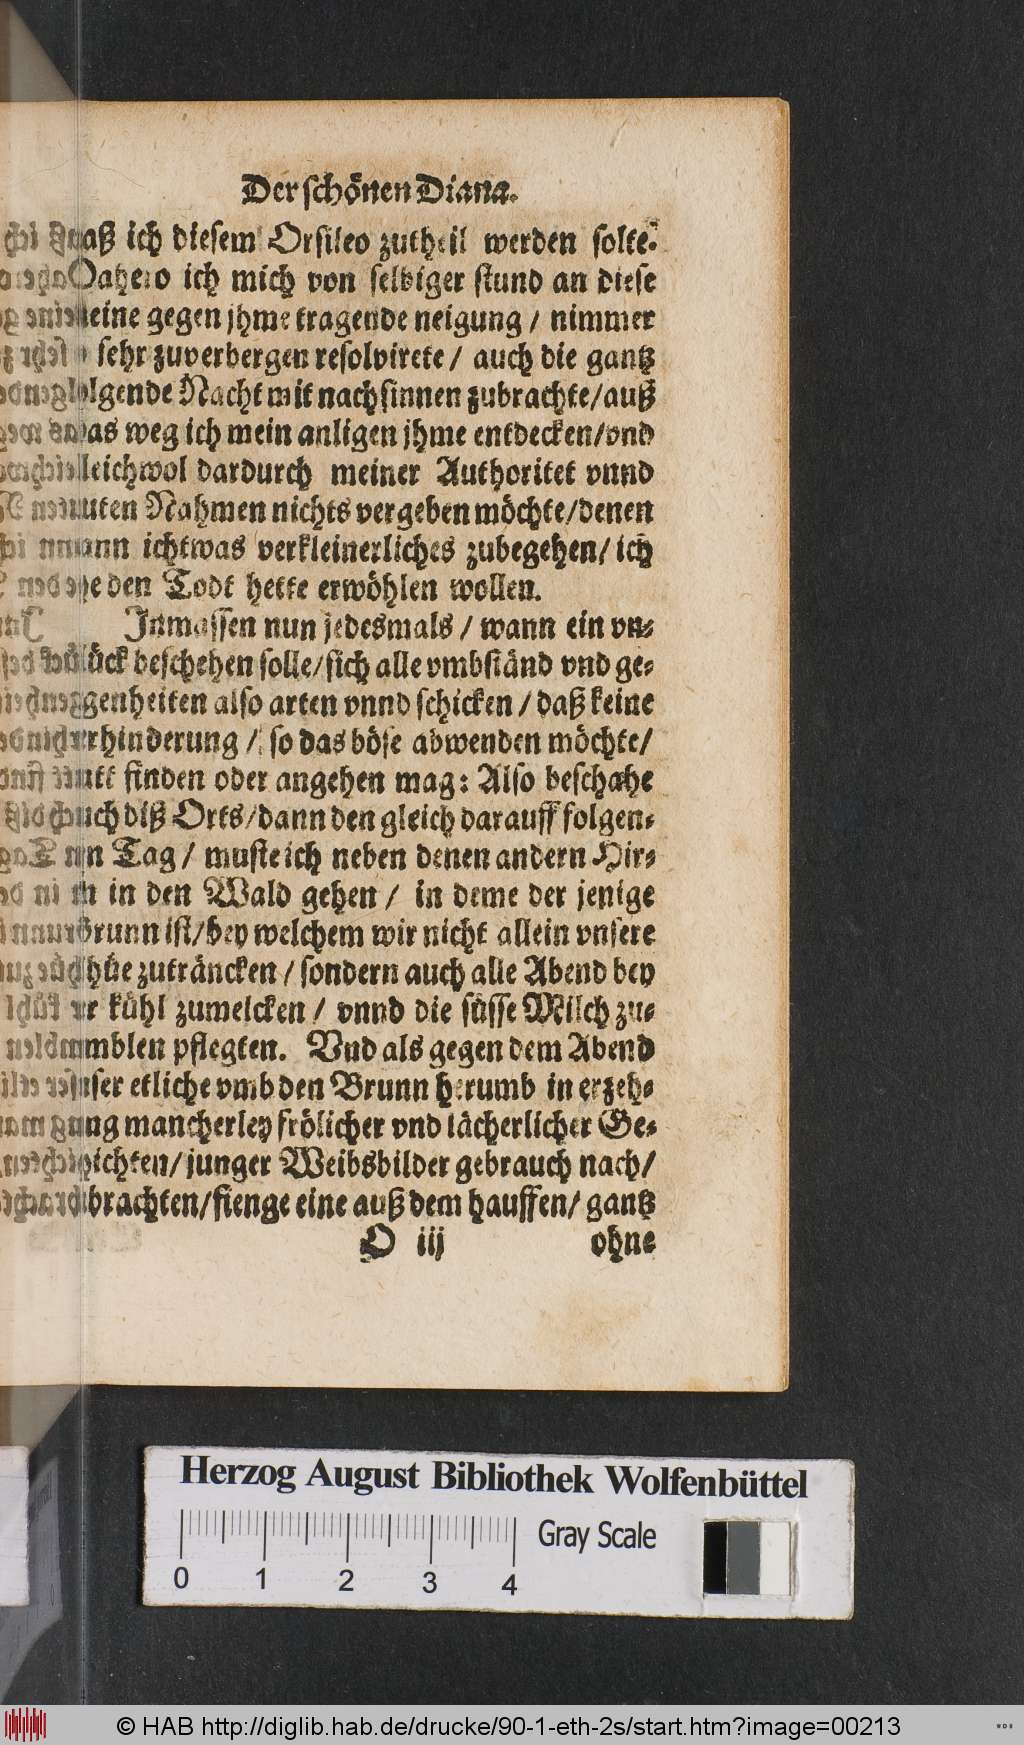 Der schönen Diana.
daß ich diesem Orsileo zutheil werden solte.
Dahero ich mich von selbiger stund an diese
meine gegen jhme tragende neigung / nimmer
so sehr zuverbergen resolvirete / auch die gantz
folgende Nacht mit nachsinnen zubrachte/auß
was weg ich mein anligen jhme entdecken/vnd
gleichwol dardurch meiner Authoritet vnnd
guten Nahmen nichts vergeben möchte/denen
dann ichtwas verkleinerliches zubegehen/ ich
ehe den Todt hette erwöhlen wollen.
Inmassen nun jedesmals / wann ein vn-
glück beschehen solle/sich alle vmbständ vnd ge-
legenheiten also arten vnnd schicken / daß keine
verhinderung / so das böse abwenden möchte/
statt finden oder angehen mag: Also beschahe
auch diß Orts/dann den gleich darauff folgen-
den Tag / muste ich neben denen andern Hir-
tin in den Wald gehen / in deme der jenige
Brunn ist/bey welchem wir nicht allein vnsere
Kühe zuträncken / sondern auch alle Abend bey
der kühl zumelcken / vnnd die süsse Milch zu-
samblen pflegten. Vnd als gegen dem Abend
vnser etliche vmb den Brunn herumb in erzeh-
lung mancherley frölicher vnd lächerlicher Ge-
schichten/junger Weibsbilder gebrauch nach/
zubrachten/fienge eine auß dem hauffen/ gantz
O iij ohne
Herzog August Bibliothek Wolfenbüttel
Gray Scale
0 1 2 3 4
© HAB http://diglib.hab.de/drucke/90-1-eth-2s/start.htm?image=00213